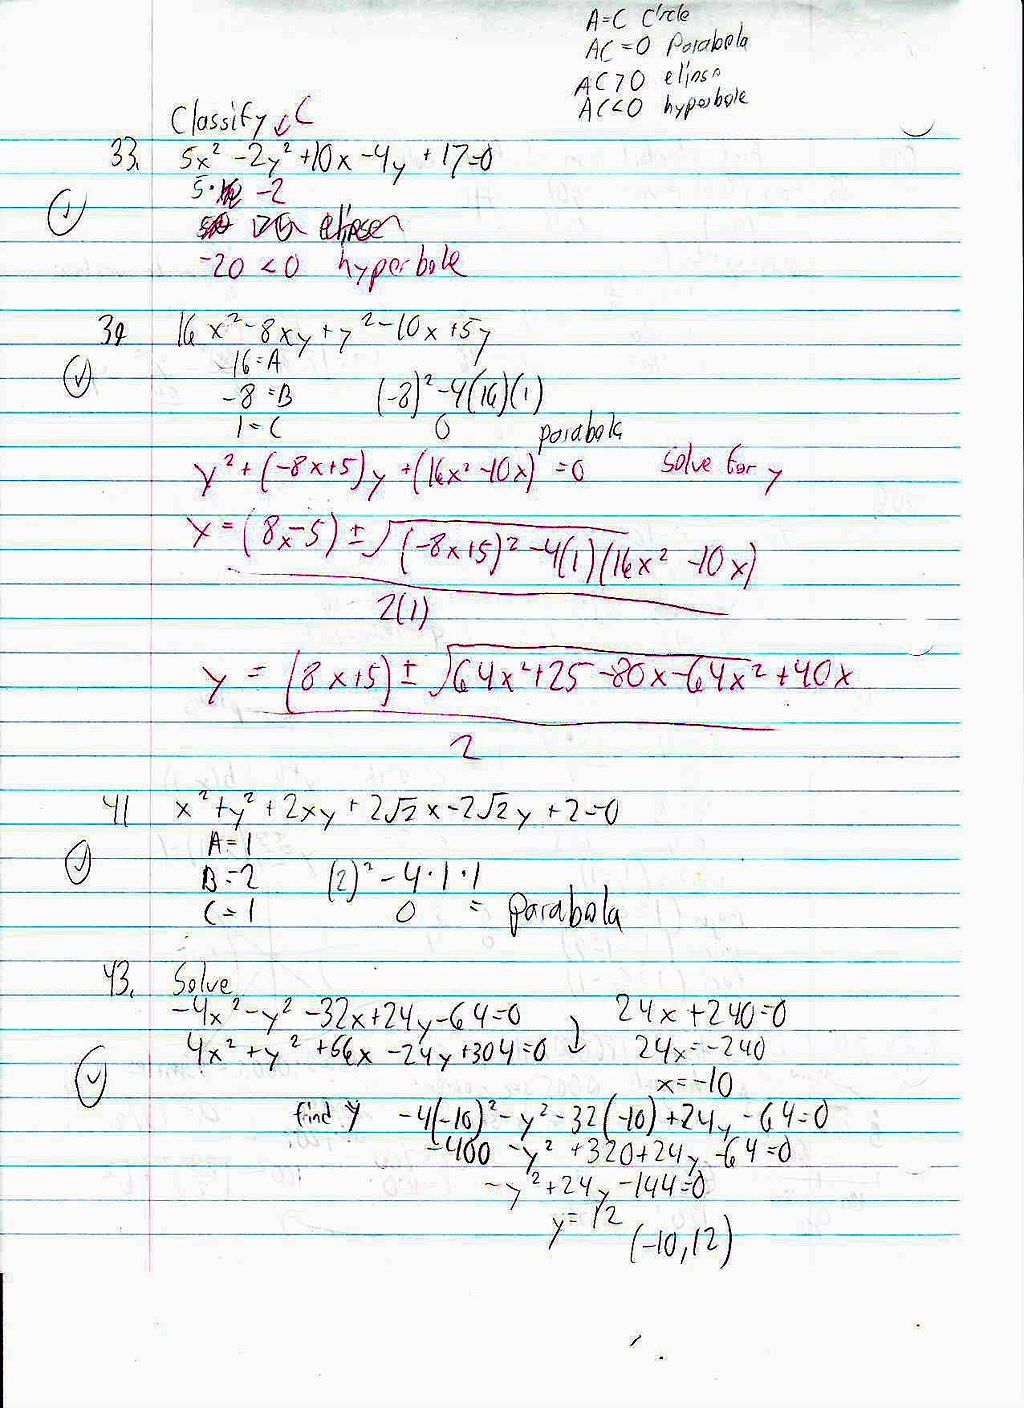 A=C Circle
AC=0 Parabola
AC>0 elipse
AC<0 hyperbole
Classify C
33. 5x² -2y² +10x -4y + 17=0
5· -2
elipse
-20 < 0 hyperbole
39 16x² -8xy + y² -10x +5y
16=A
-8=B (-8)² -4(16)(1)
1=C 0 parabola
y² + (-8x+5)y +(16x² -10x) =0 Solve for y
y = (8x-5) ± √(-8x+5)² -4(1)(16x² -10x)
2(1)
y = (8x+5) ± √64x²+25 -80x -64x² +40x
2
41 x² +y² + 2xy + 2√2 x -2√2 y +2=0
A=1
B=2 (2)² - 4·1·1
C=1 0 = parabola
43. Solve
-4x² -y² -32x+24y-64=0 24x +240=0
4x² +y² +56x -24y+304=0 24x=-240
x=-10
find y -4(-10)² -y² -32(-10) +24y -64=0
-400 -y² +320+24y -64=0
-y² +24y -144=0
y=12
(-10,12)